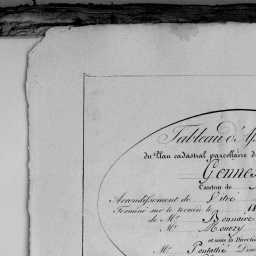 Tableau d'As
du Plan cadastral parcellaire d
Gennes
Canton de
Arrondissement de Vitré
Terminé sur le terrain le 11
de Mr. Bonnaire
Mr. Mowry
et sous la Directi
Mr. Pontallié